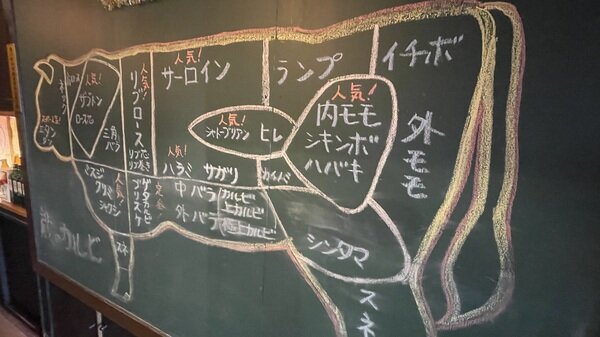 ネック
人気!
ザブトン
ロース芯
三角
バラ
人気!
リブロース
リブ芯
リブ巻き
人気!
サーロイン
ランプ
イチボ
人気!
シャトーブリアン
ヒレ
人気!
内モモ
シキンボ
ハバキ
外モモ
人気!
ハラミ サガリ
カイノミ
ミスジ
クリミ
人気!
ゲタカルビ
ブリスケ
定番!
中バラ
カルビ
上カルビ
外バラ
極上カルビ
カルビ
スネ
シンタマ
スネ